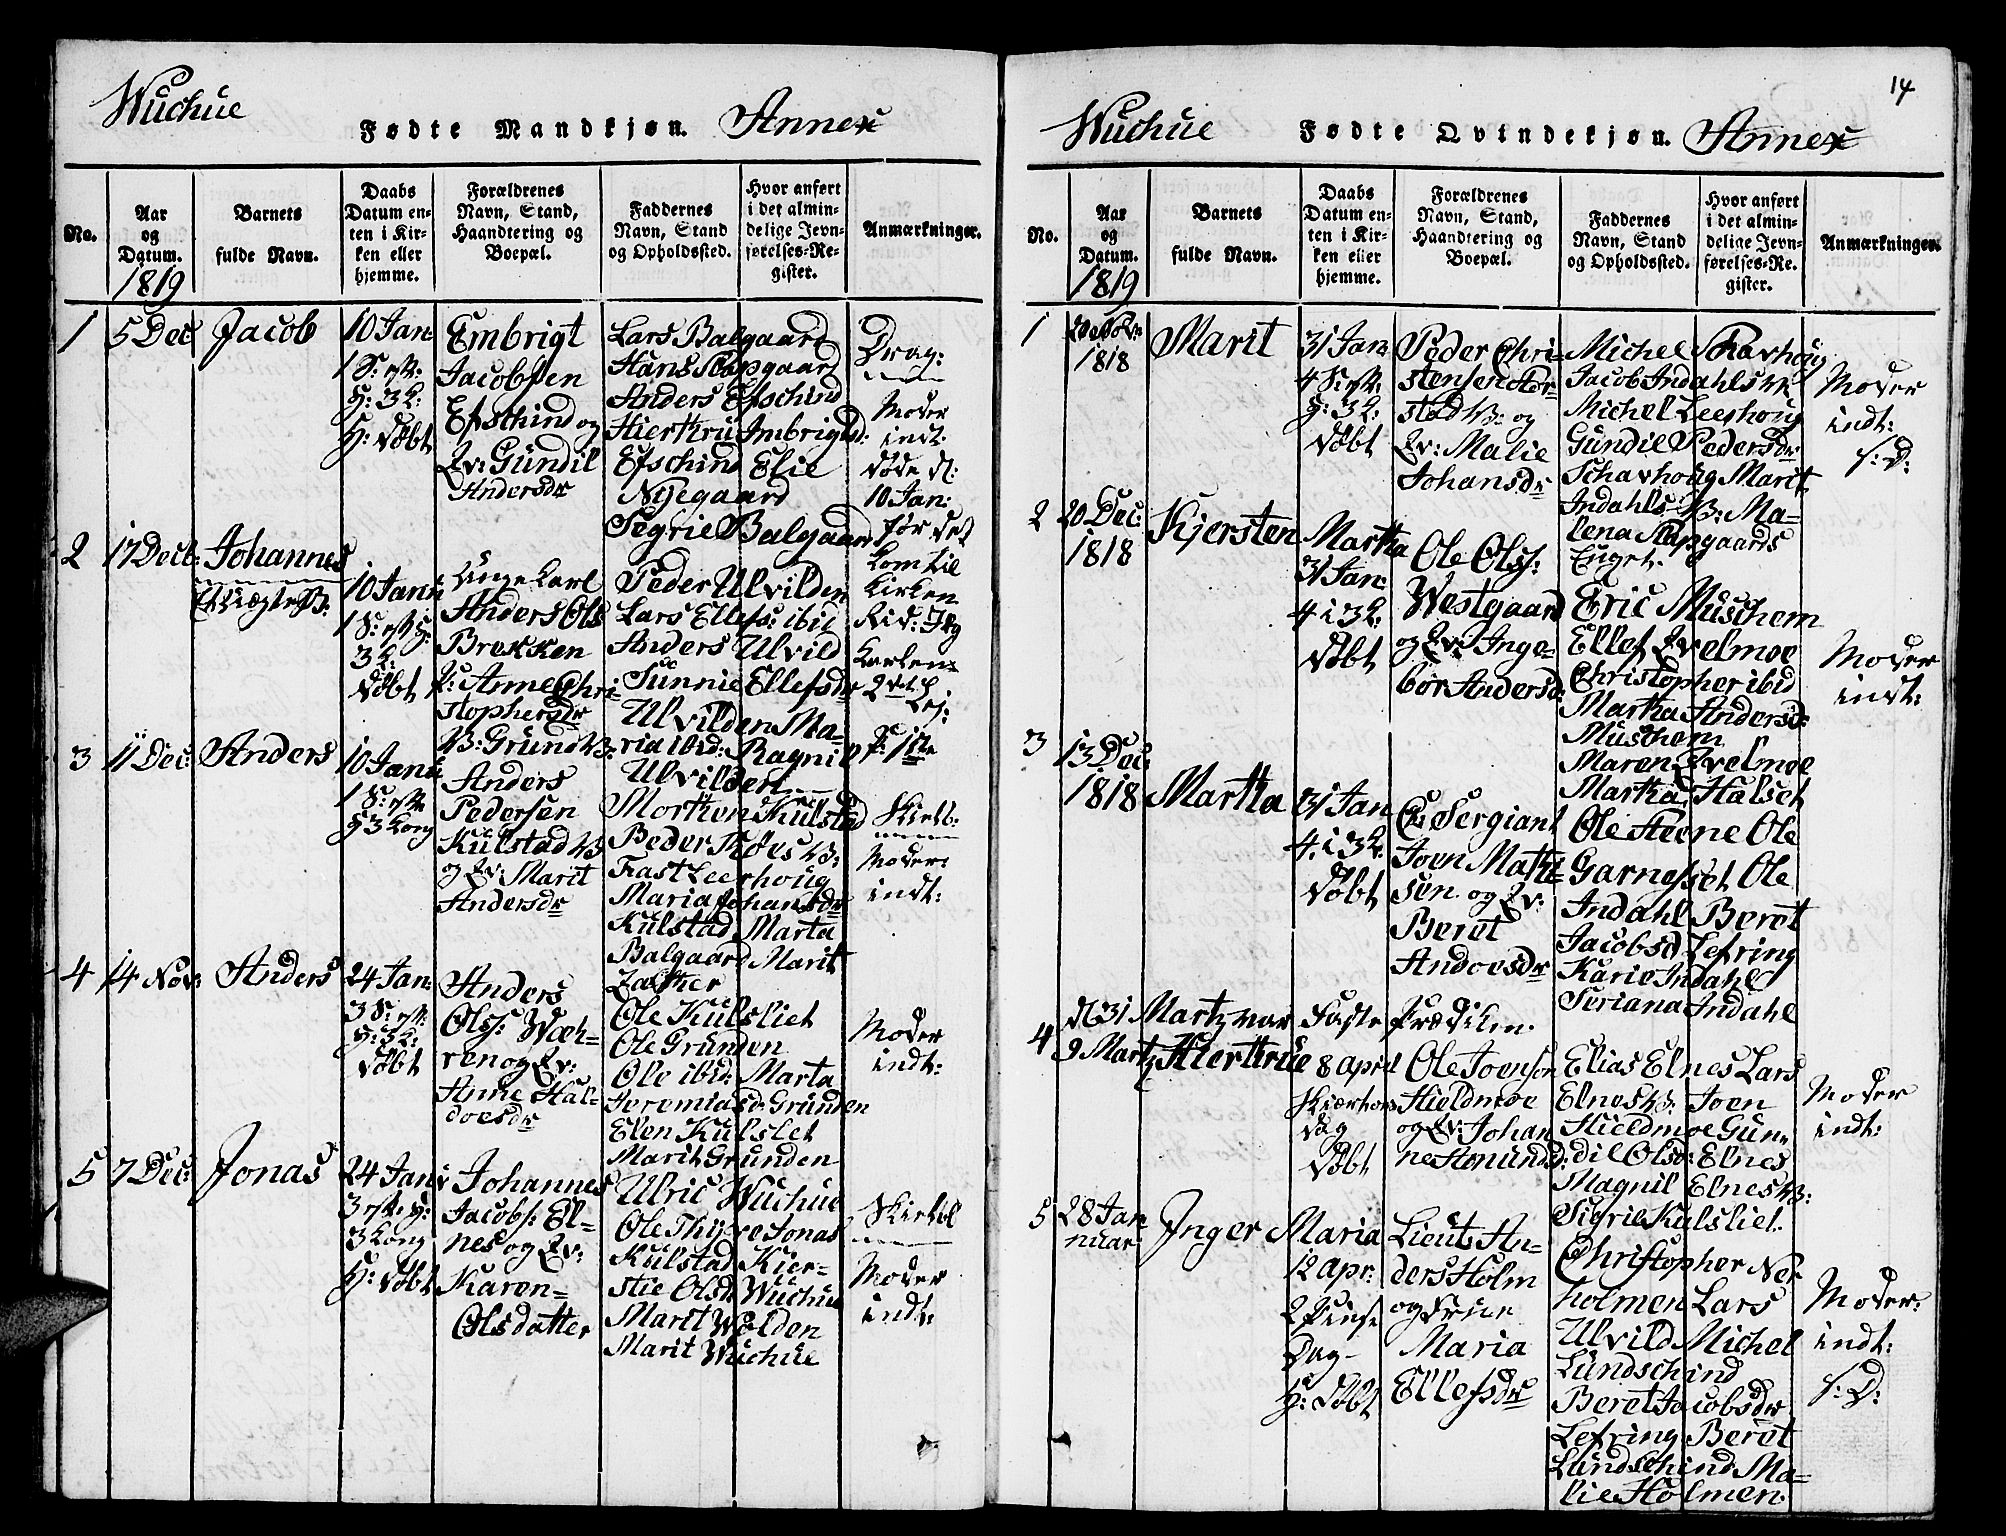 Wuchue
Fødte Mandkjøn. Annex
No.
Aar
og
Datum.
1819
Barnets
fulde Navn.
Daabs
Datum en-
ten i Kir-
ken eller
hjemme.
Forældrenes
Navn, Stand,
Haandtering og
Boepæl.
Faddernes
Navn, Stand
og Opholdssted.
Hvor anført
i det almin-
delige Jevn-
førelses-Re-
gister.
Anmærkninger.
1
5 Dec
Jacob
10 Jan:
H: døbt
Embrigt
Jacobsen
Efschind og
Qv: Gundil
Andersdr
Lars Balgaard
Hans Slapgaard
Anders Efschind
Hierthru Imbrigtsd:
Efschind Elie
Nyegaard
Segrie Balgaard
Drag:
Moder
indt.
døde d:
10 Jan:
før det
kom til
Kirken
2
17 Decb.
Johannes
10 Janu
døbt
Unge Karl
Anders Ols
Brekken
P: Anne Chri-
stophersdr
B: Grund B:
Peder Ulvilden
Lars Ellefs: ibid
Anders Ulvild
Sunnie Ellefsdr
Ulvilden Ma-
ria ibid: Ragnil
Ulvilden
3
11 Dec:
Anders
10 Janu
Anders
Pedersen
Kulstad B
og Qv: Marit
Andersdr
Morthen Kulstad
Peder Moes B:
Fast Leerhoug
Maria Johansdr
Kulstad Marta
Balgaard Marit
Moder
indt:
4
14 Nov:
Anders
24 Jan:
døbt
Anders
Ols: Wæh-
ren og Qv:
Anne Hal-
doesdr
Ole Kulsliet
Ole Grunden
Ole ibid: Marta
Jeremiasd: Grunden
Elen Kulslet
Marit Grunden
Moder
indt:
5
7 Dec:
Jonas
24 Jan:
H: døbt
Johannes
Jacobs: El-
nes og Qv:
Karen
Olsdatter
Ulric Wuchue
Ole Thyre Jonas
Kulstad Kier-
stie Olsd: Wuchue
Marit Wolden
Marit Wuchue
Moder
indt:
14
Wuchue
Fødte Qvindekjøn. Annex
No.
Aar
og
Datum.
1819
Barnets
fulde Navn.
Daabs
Datum en-
ten i Kir-
ken eller
hjemme.
Forældrenes
Navn, Stand,
Haandtering og
Boepæl.
Faddernes
Navn, Stand
og Opholdssted.
Hvor anført
i det almin-
delige Jevn-
førelses-Re-
gister.
Anmærkningen.
1
1818
Marit
31 Jan:
døbt
Peder Chri-
stensen Hor-
stad B: og
Qv: Malie
Johansdr
Michel Schavhoug
Jacob Indahls
Michel Leerhoug
Gundil Pedersdr
Schavhoug Marit
Indahls B: Ma-
lena Slapgaards
Enget.
Moder
indt:
s: D:
2
20 Dec:
1818
Kjersten
Martha
31 Jan:
4 i 3 L:
døbt
Ole Ols:
Westgaard
og Qv: Inge-
bor Andersd:
Eric Muschem
Ellef Qvelmoe
Christopher ibid
Martha Andersd:
Muschem
Maren Qvelmoe
Martha Halset
Moder
indt:
3
13 Dec:
1818
Martha
31 Jan
4. i 3 L:
døbt
Sergiant
Joen Mathi-
sen og Qv:
Beret
Andoesdr
Ole Steene Ole
Garnesset Ole
Indahl Beret
Jacobsd Lefring
Karie Indahl
Seriana Indahl
d 31 Martz var Faste Prædiken.
4
9 Martz
Hierthrue
8 april
Skiærtors
dag
døbt
Ole Joensen
Hieldmoe
og Qv: Johan
ne Amundsd:
Elias Elnes Lars
Elnes B: Joen
Hieldmoe Gun-
dil Olsd: Elnes
Magnil Elnes B:
Sigrie Kulsliet.
Moder
indt:
5
28 Jan-
nuar
Inger Maria
12 apr:
Dag
H: døbt
Lieut: An-
ders Holm
og Frue
Maria
Ellefsdr
Christopher Ner
holmen Lars
Ulvild Michel
Lundschind
Beret Jacobsdr
Lefring Beret
Lundschind Ma-
lie Holmen.
Moder:
indt:
s: D: